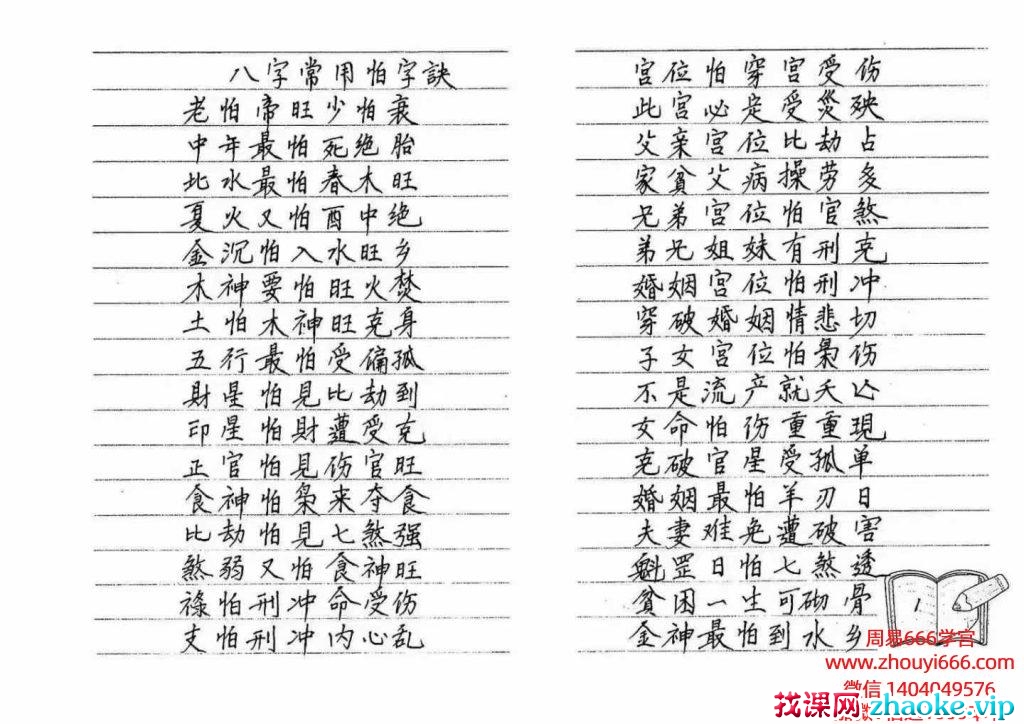 八字常用怕字訣
老怕帝旺少怕衰
中年最怕死绝胎
北水最怕春木旺
夏火又怕酉中绝
金沉怕入水旺乡
木神要怕旺火焚
土怕木神旺克身
五行最怕受偏孤
財星怕見比劫到
印星怕財遭受克
正官怕見伤官旺
食神怕枭来夺食
比劫怕見七煞强
煞弱又怕食神旺
祿怕刑冲命受伤
支怕刑冲内心乱
宫位怕穿宫受伤
此宫必定受災殃
父亲宫位比劫占
家貧父病操劳多
兄弟宫位怕官煞
弟兄姐妹有刑克
婚姻宫位怕刑冲
穿破婚姻情悲切
子女宫位怕枭伤
不是流产就夭亡
女命怕伤重重現
克破官星受孤单
婚姻最怕羊刃日
夫妻难免遭破害
魁罡日怕七煞透
貧困一生可砌骨
金神最怕到水乡
1
周易666学宫
www.zhouyi666.com
微信 1404049576
找课网zhaoke.vip